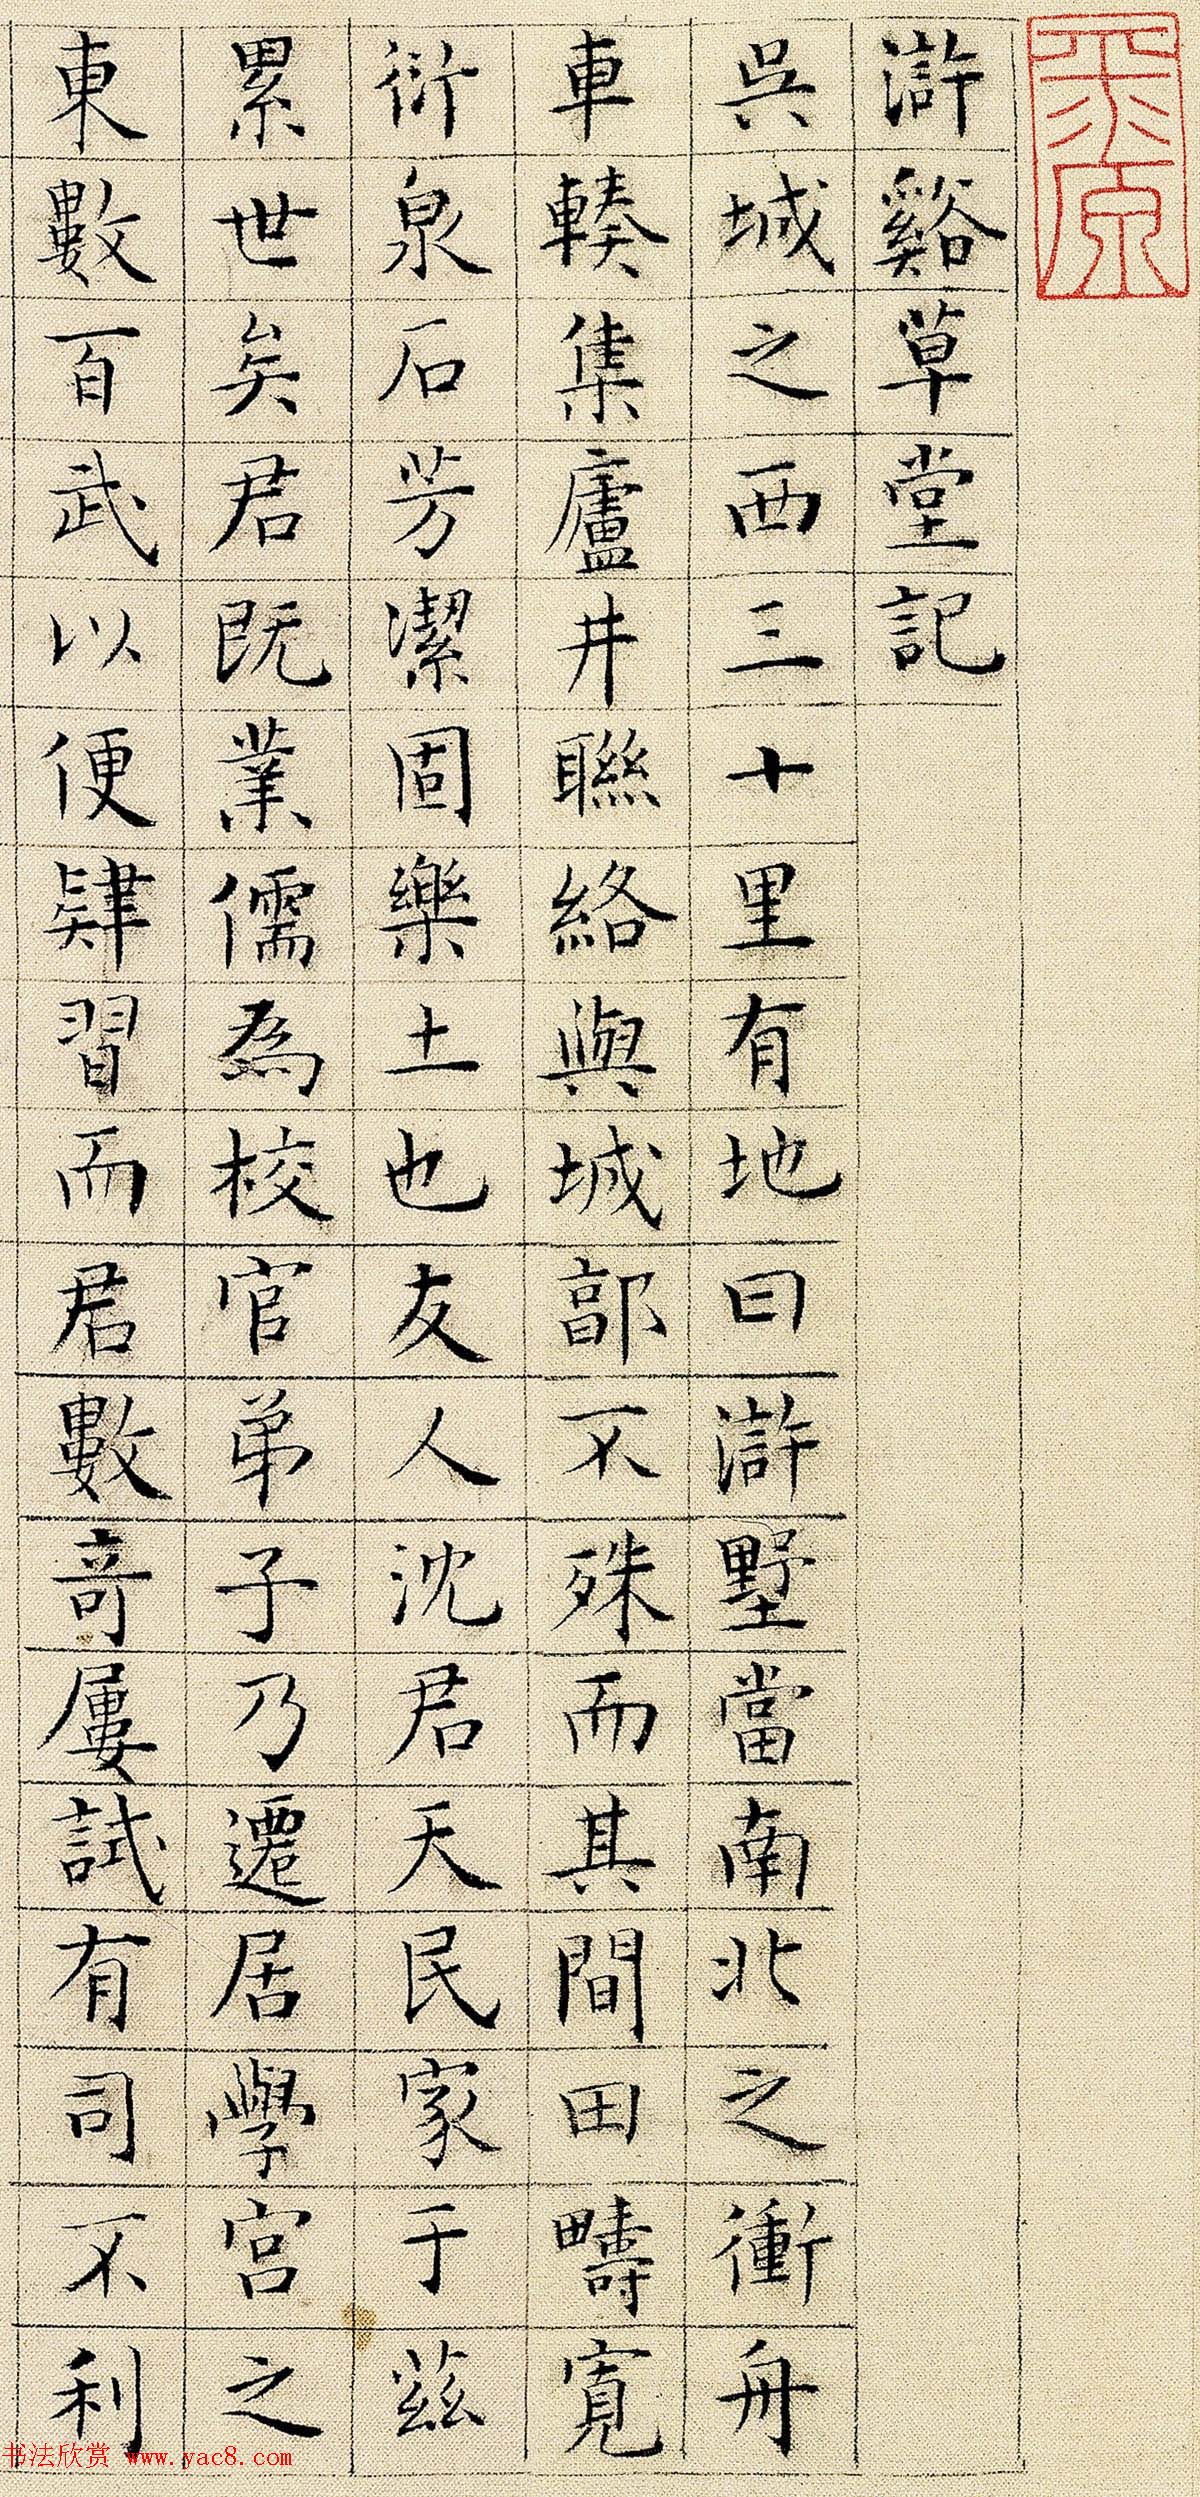 滸谿草堂記
吳城之西三十里有地曰滸墅當南北之衝舟
車輳集廬井聯絡與城郭不殊而其間田疇寬
衍泉石芳潔固樂土也友人沈君天民家于茲
累世矣君既業儒為校官弟子乃遷居學宮之
東數百武以便肄習而君數奇屢試有司不利
书法欣赏 www.yac8.com